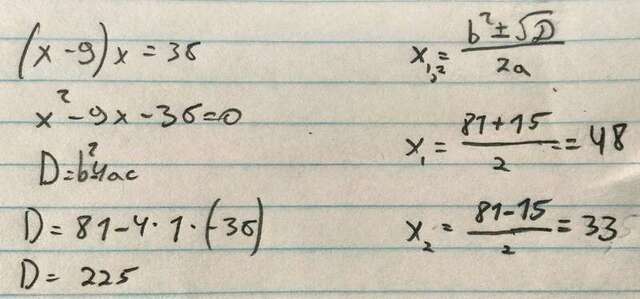 (x - 9) x = 36
x² - 9x - 36 = 0
D = b² 4ac
D = 81 - 4 · 1 · (-36)
D = 225
x₁,₂ = (b² ± √D) / 2a
x₁ = (81 + 15) / 2 == 48
x₂ = (81 - 15) / 2 = 33